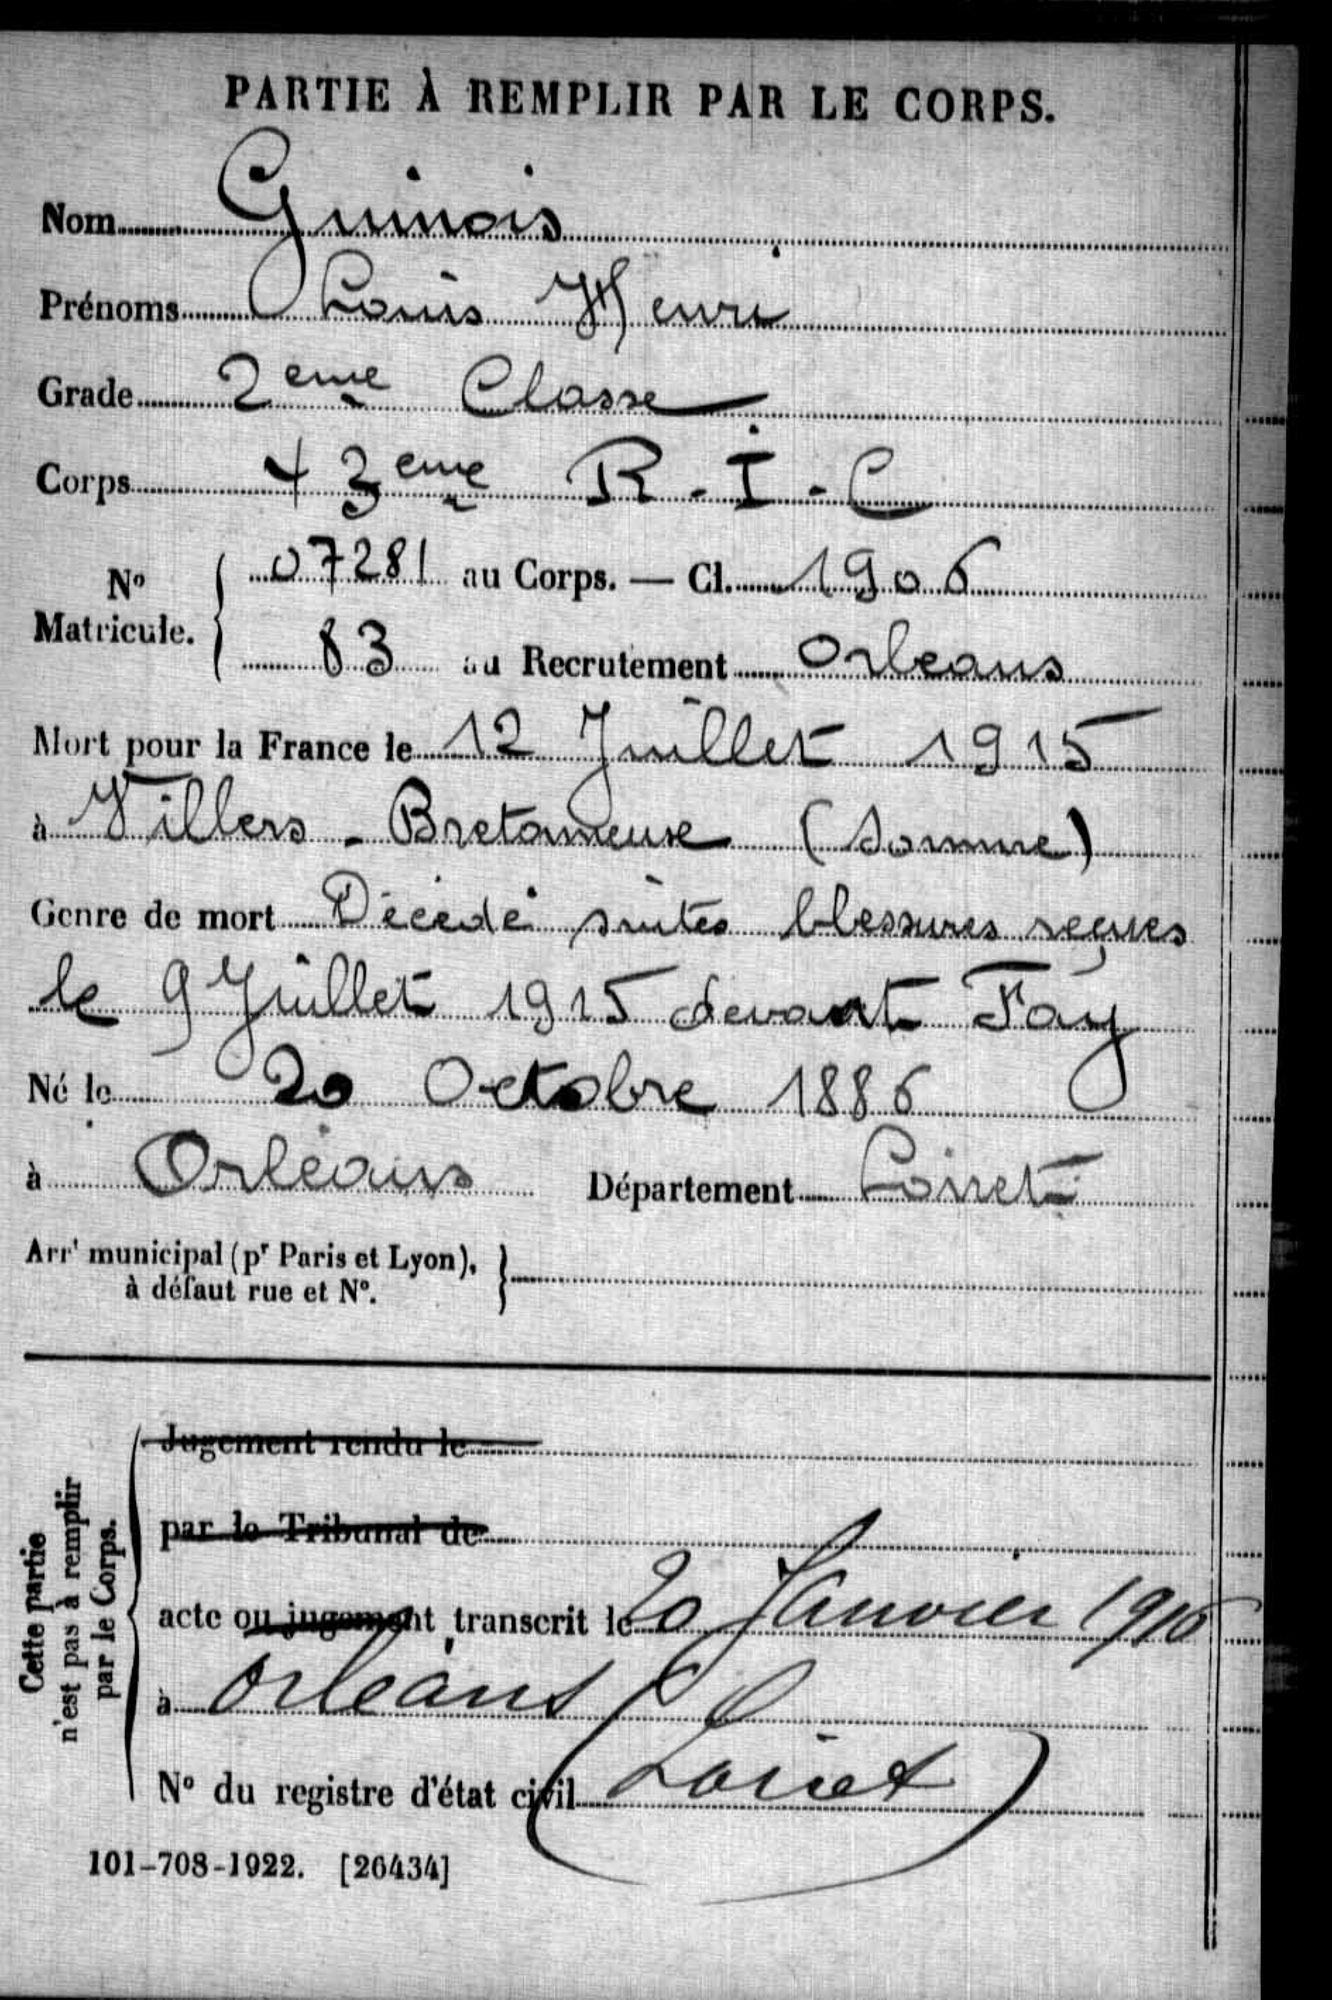 PARTIE À REMPLIR PAR LE CORPS.
Nom Guinois
Prénoms Louis Henri
Grade 2eme Classe
Corps 43eme R.I.C
No Matricule. 07281 au Corps. — Cl. 1906
83 au Recrutement Orleans
Mort pour la France le 12 Juillet 1915
à Villers-Bretonneuse (Somme)
Genre de mort Décédé suites blessures reçues
le 9 Juillet 1915 devant Fay
Né le 20 Octobre 1886
à Orléans Département Loiret
Arrt municipal (pr Paris et Lyon),
à défaut rue et No.
Cette partie
n'est pas à remplir
par le Corps.
Jugement rendu le
par le Tribunal de
acte ou jugement transcrit le 20 Janvier 1916
à Orléans
No du registre d'état civil (Loiret)
101-708-1922. [26434]